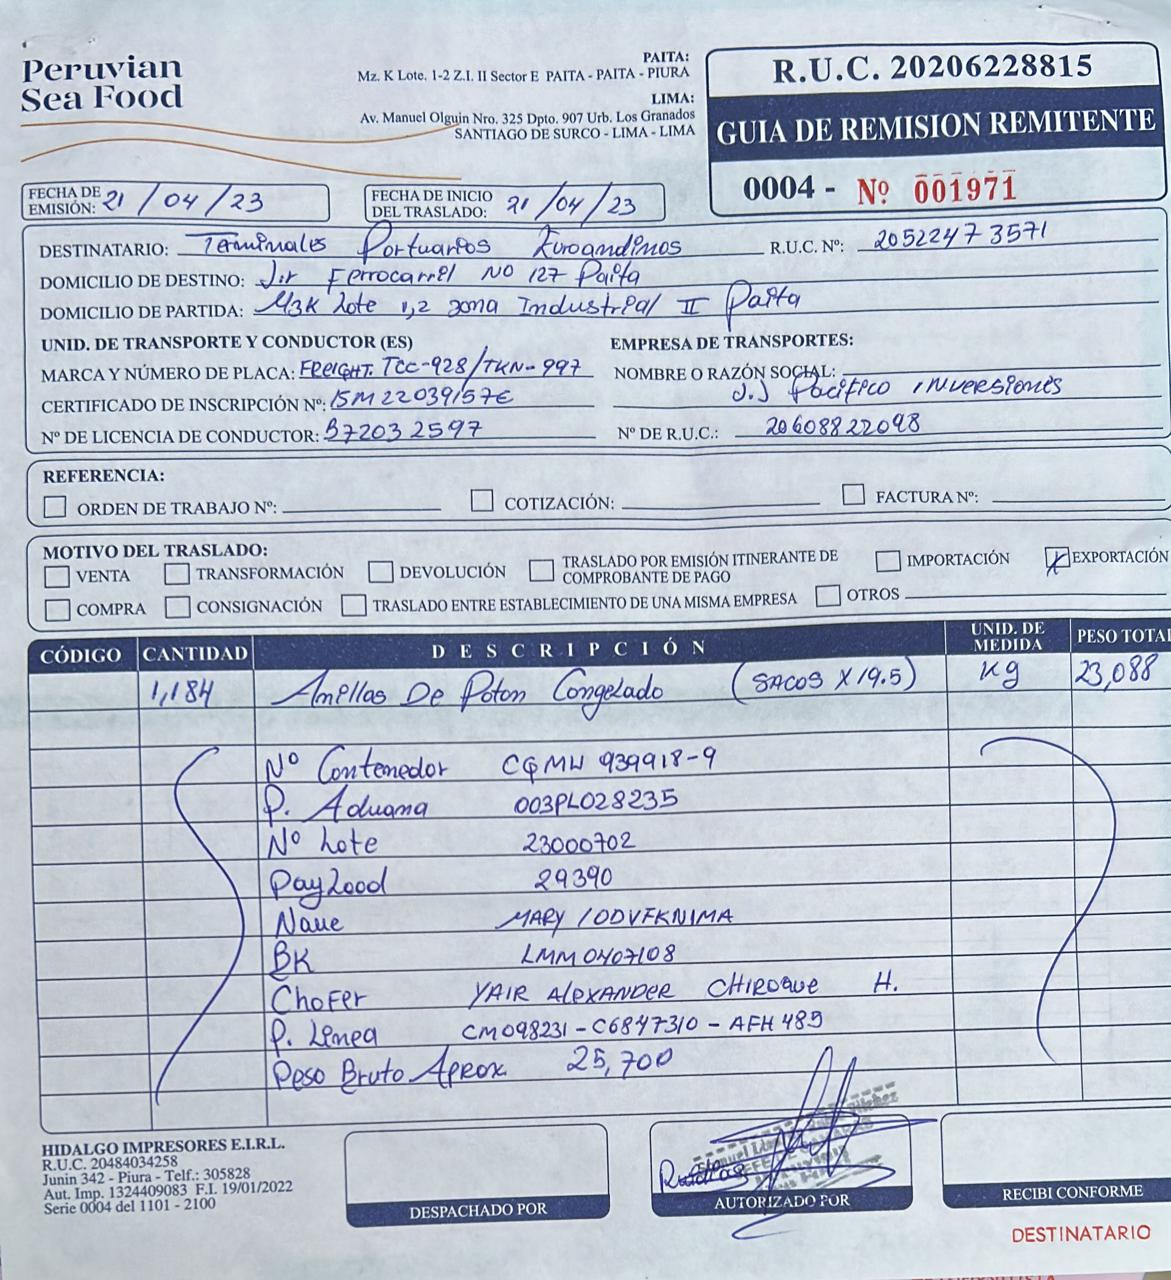 Peruvian
Sea Food
PAITA:
Mz. K Lote. 1-2 Z.I. II Sector E PAITA - PAITA - PIURA
LIMA:
Av. Manuel Olguin Nro. 325 Dpto. 907 Urb. Los Granados
SANTIAGO DE SURCO - LIMA - LIMA
R.U.C. 20206228815
GUIA DE REMISION REMITENTE
0004 - Nº 001971
FECHA DE EMISIÓN: 21 / 04 / 23
FECHA DE INICIO DEL TRASLADO: 21 / 04 / 23
DESTINATARIO: Terminales Portuarios Euroandinos R.U.C. Nº: 20522473571
DOMICILIO DE DESTINO: Jir Ferrocarrel NO 127 Paita
DOMICILIO DE PARTIDA: MzK Lote 1,2 zona Industrial II Paita
UNID. DE TRANSPORTE Y CONDUCTOR (ES)
EMPRESA DE TRANSPORTES:
MARCA Y NÚMERO DE PLACA: FREIGHT. TCC-928/TKN-997
NOMBRE O RAZÓN SOCIAL:
J.J Pacifico INVERSIONES
CERTIFICADO DE INSCRIPCIÓN Nº: 15M22039157E
Nº DE LICENCIA DE CONDUCTOR: B72032597
Nº DE R.U.C.: 20608822098
REFERENCIA:
ORDEN DE TRABAJO Nº: COTIZACIÓN: FACTURA Nº:
MOTIVO DEL TRASLADO:
VENTA TRANSFORMACIÓN DEVOLUCIÓN TRASLADO POR EMISIÓN ITINERANTE DE COMPROBANTE DE PAGO IMPORTACIÓN EXPORTACIÓN
COMPRA CONSIGNACIÓN TRASLADO ENTRE ESTABLECIMIENTO DE UNA MISMA EMPRESA OTROS
CÓDIGO CANTIDAD DESCRIPCIÓN UNID. DE MEDIDA PESO TOTAL
1,184 Anillas De Poton Congelado (SACOS X 19.5) Kg 23,088
Nº Contenedor 939918-9
P. Aduana 003PL028235
Nº Lote 23000702
Payload 29390
Nave MARY
BK LMM0407108
Chofer YAIR ALEXANDER CHIROQUE H.
P. Linea CM098231-C6847310-AFH489
Peso Bruto Aprox. 25,700
HIDALGO IMPRESORES E.I.R.L.
R.U.C. 20484034258
Junin 342 - Piura - Telf.: 305828
Aut. Imp. 1324409083 F.I. 19/01/2022
Serie 0004 del 1101 - 2100
DESPACHADO POR
AUTORIZADO POR
RECIBI CONFORME
DESTINATARIO